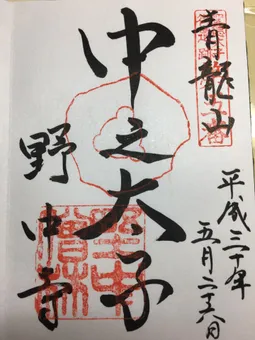 青龍山
中之太子
野中寺
平成三十年
五月二十八日